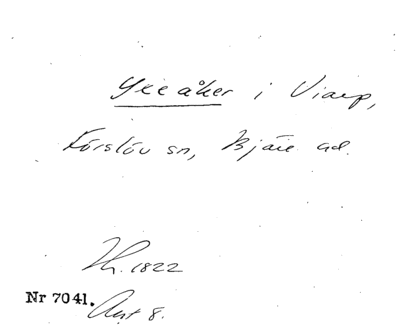 Yxeåker i Viarp,
Förslöv sn, Bjäre hd.
Th. 1822
Nr 7041.
Ant 8.